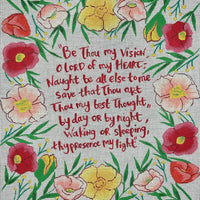 "Be Thou my Vision
O LORD of my HEART-
Naught to all else to me
save that Thou art
Thou my best Thought,
by day or by night,
Waking or sleeping,
thy presence my light"